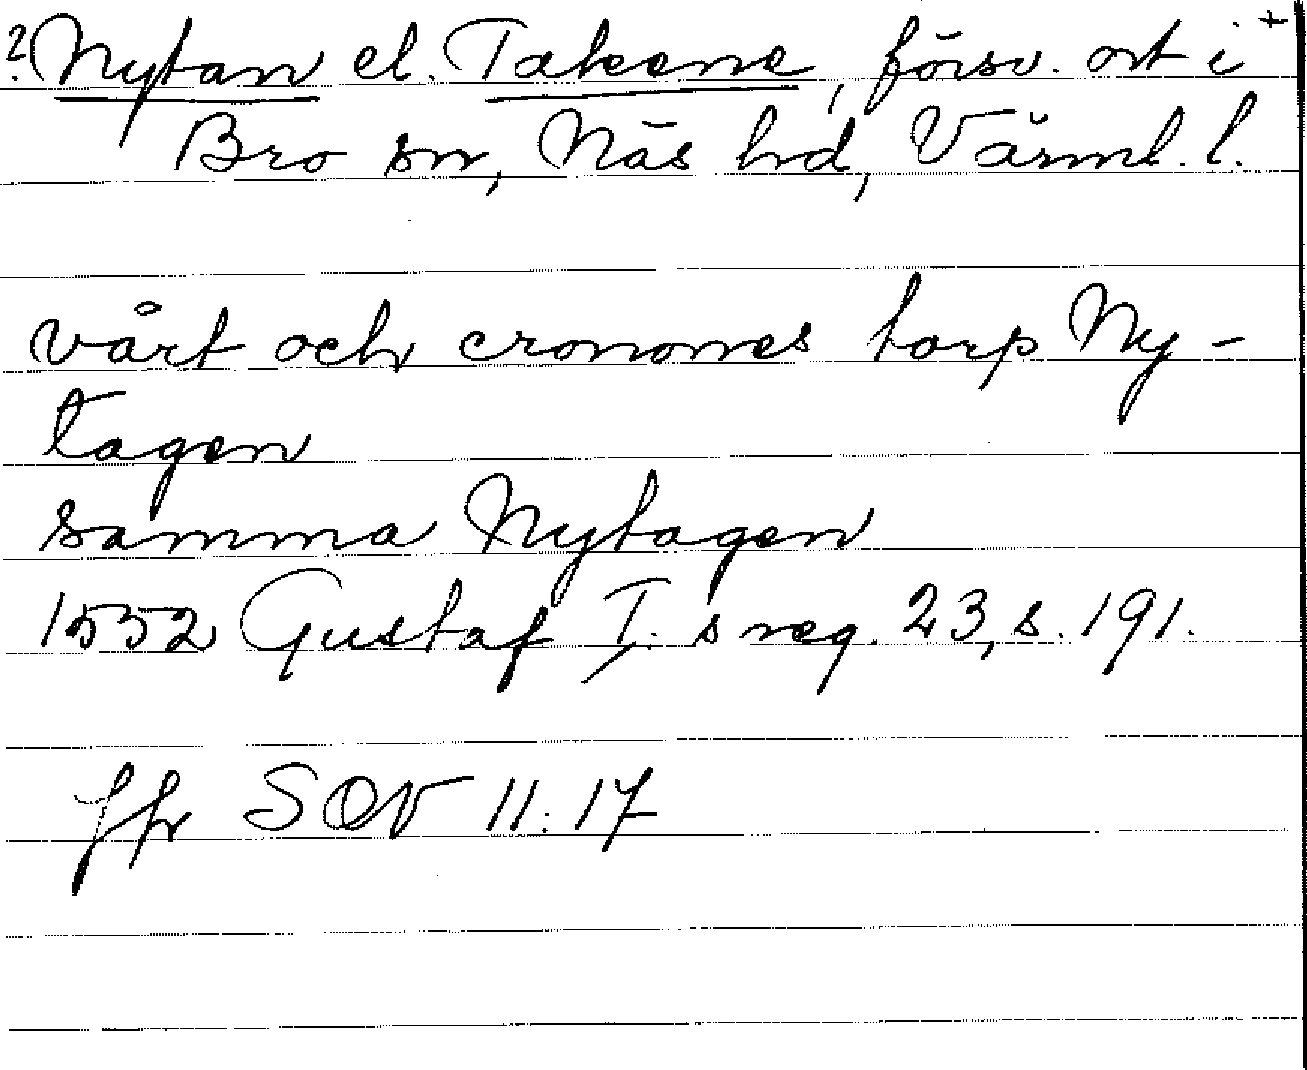 ? Nytan el. Takene, försv. ort i +
Bro sn, Näs hd, Värml. l.
vårt och cronones torp Ny-
tagen
samma Nytagen
1552 Gustaf I:s reg. 23, s. 191.
Jfr SOV 11:17